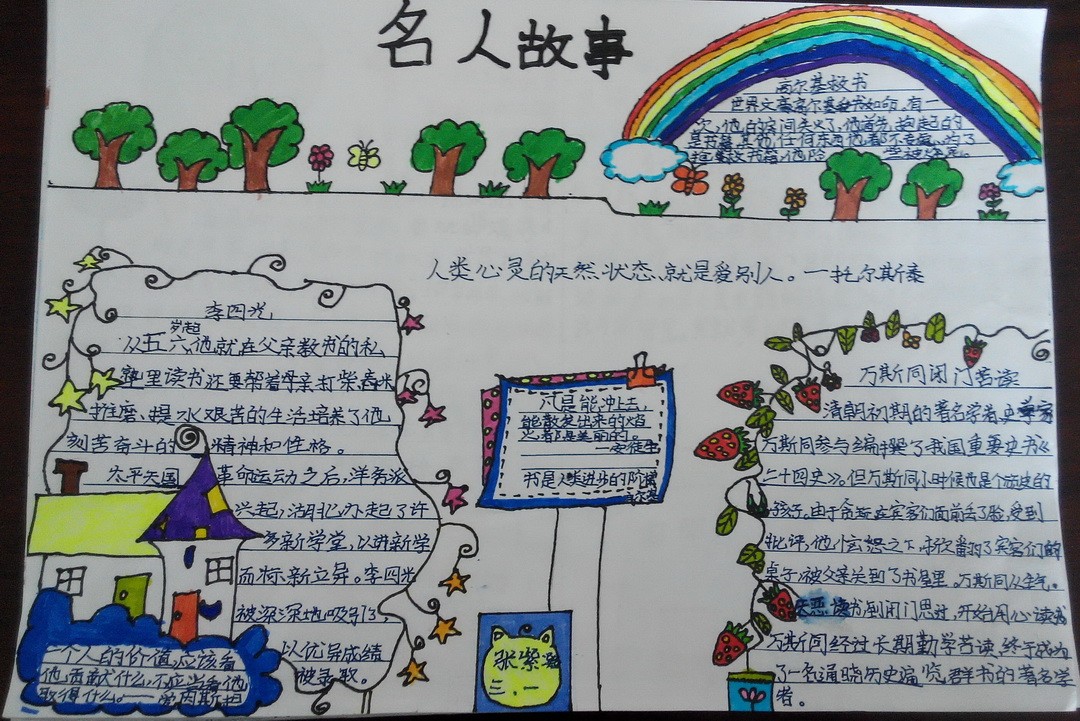 名人故事
高尔基救书
世界文豪高尔基爱书如命,有一
次,他的房间失火了,他首先抱起的
是书籍,其他任何东西他都不考虑,为了
抢救书籍,他险
人类心灵的天然状态,就是爱别人。—托尔斯泰
李四光
岁起
从五六,他就在父亲教书的私
塾里读书还要帮着母亲打柴舂米
推磨、提水艰苦的生活培养了他
刻苦奋斗的精神和性格。
太平天国革命运动之后,洋务派
兴起,湖北办起了许
多新学堂,以进新学
而标新立异。李四光
被深深地吸引了,
以优异成绩
被录取。
一个人的价值,应该看
他贡献什么,不应当看他
取得什么。——爱因斯坦
只是能冲上去,
能散发出来的焰
火都是美丽的。
—安徒生
书是人类进步的阶梯
张紫
三、一
万斯同闭门苦读
清朝初期的著名学者、史学家
万斯同参与编撰了我国重要史书《
二十四史》,但万斯同小时候也是个顽皮的
孩子。由于贪玩在宾客们面前丢了脸,受到
批评,他恼怒之下,掀翻了宾客们的
桌子,被父亲关到了书屋里。万斯同从生气、
厌恶读书到闭门思过,开始用心读书
万斯同经过长期勤学苦读,终于成为
了一名通晓历史遍览群书的著名学
者。